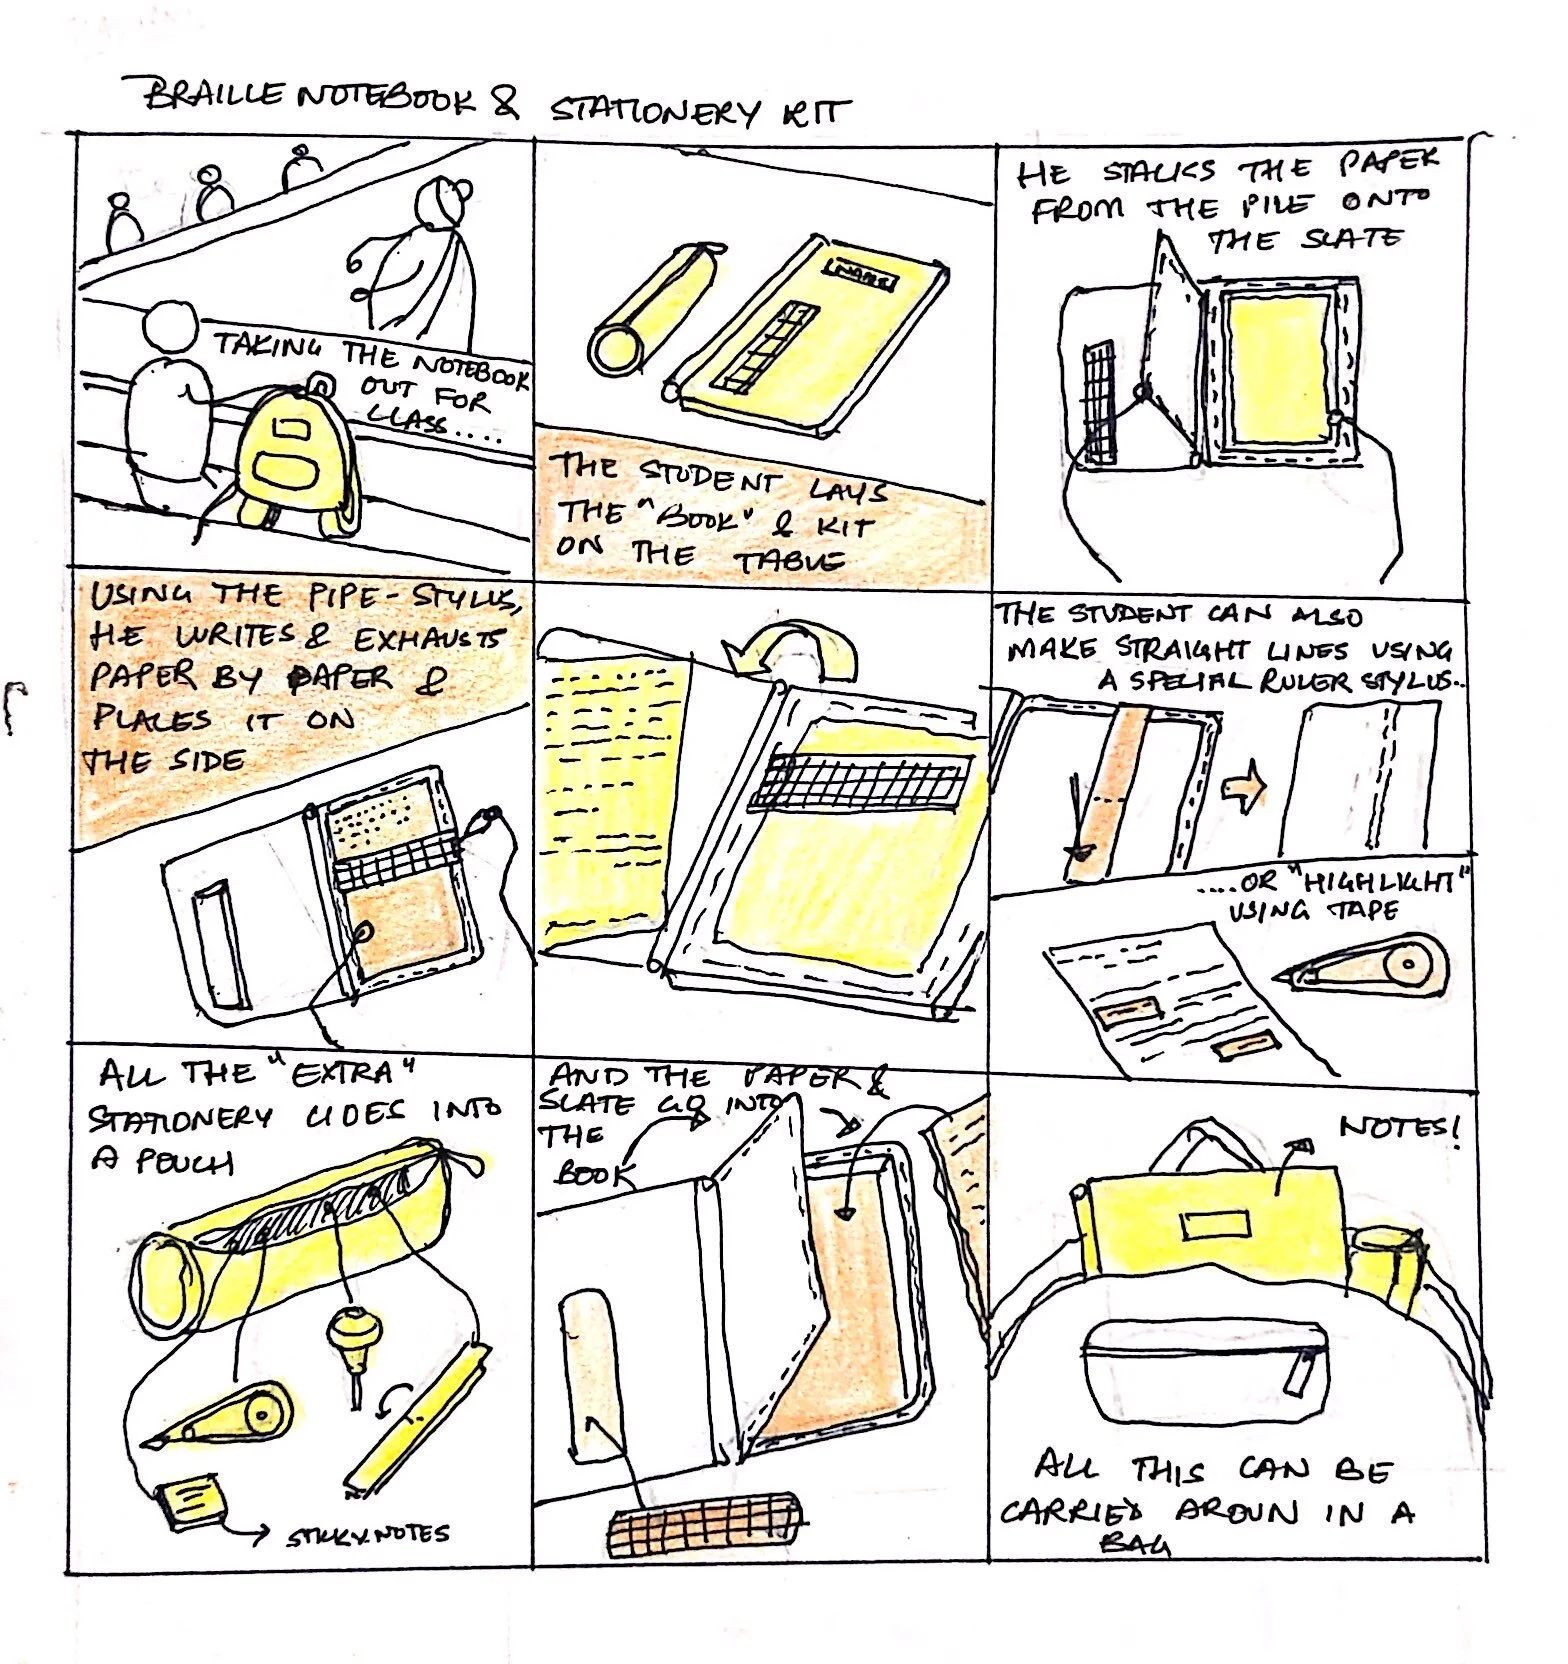 BRAILLE NOTEBOOK & STATIONERY KIT
TAKING THE NOTEBOOK
OUT FOR
CLASS....
NAME
THE STUDENT LAYS
THE "BOOK" & KIT
ON THE TABLE
HE STACKS THE PAPER
FROM THE PILE ONTO
THE SLATE
USING THE PIPE-STYLUS,
HE WRITES & EXHAUSTS
PAPER BY PAPER &
PLACES IT ON
THE SIDE
THE STUDENT CAN ALSO
MAKE STRAIGHT LINES USING
A SPECIAL RULER STYLUS..
....OR "HIGHLIGHT"
USING TAPE
ALL THE "EXTRA"
STATIONERY GOES INTO
A POUCH
STICKY NOTES
AND THE PAPER &
SLATE GO INTO
THE
BOOK
NOTES!
ALL THIS CAN BE
CARRIED AROUN IN A
BAG